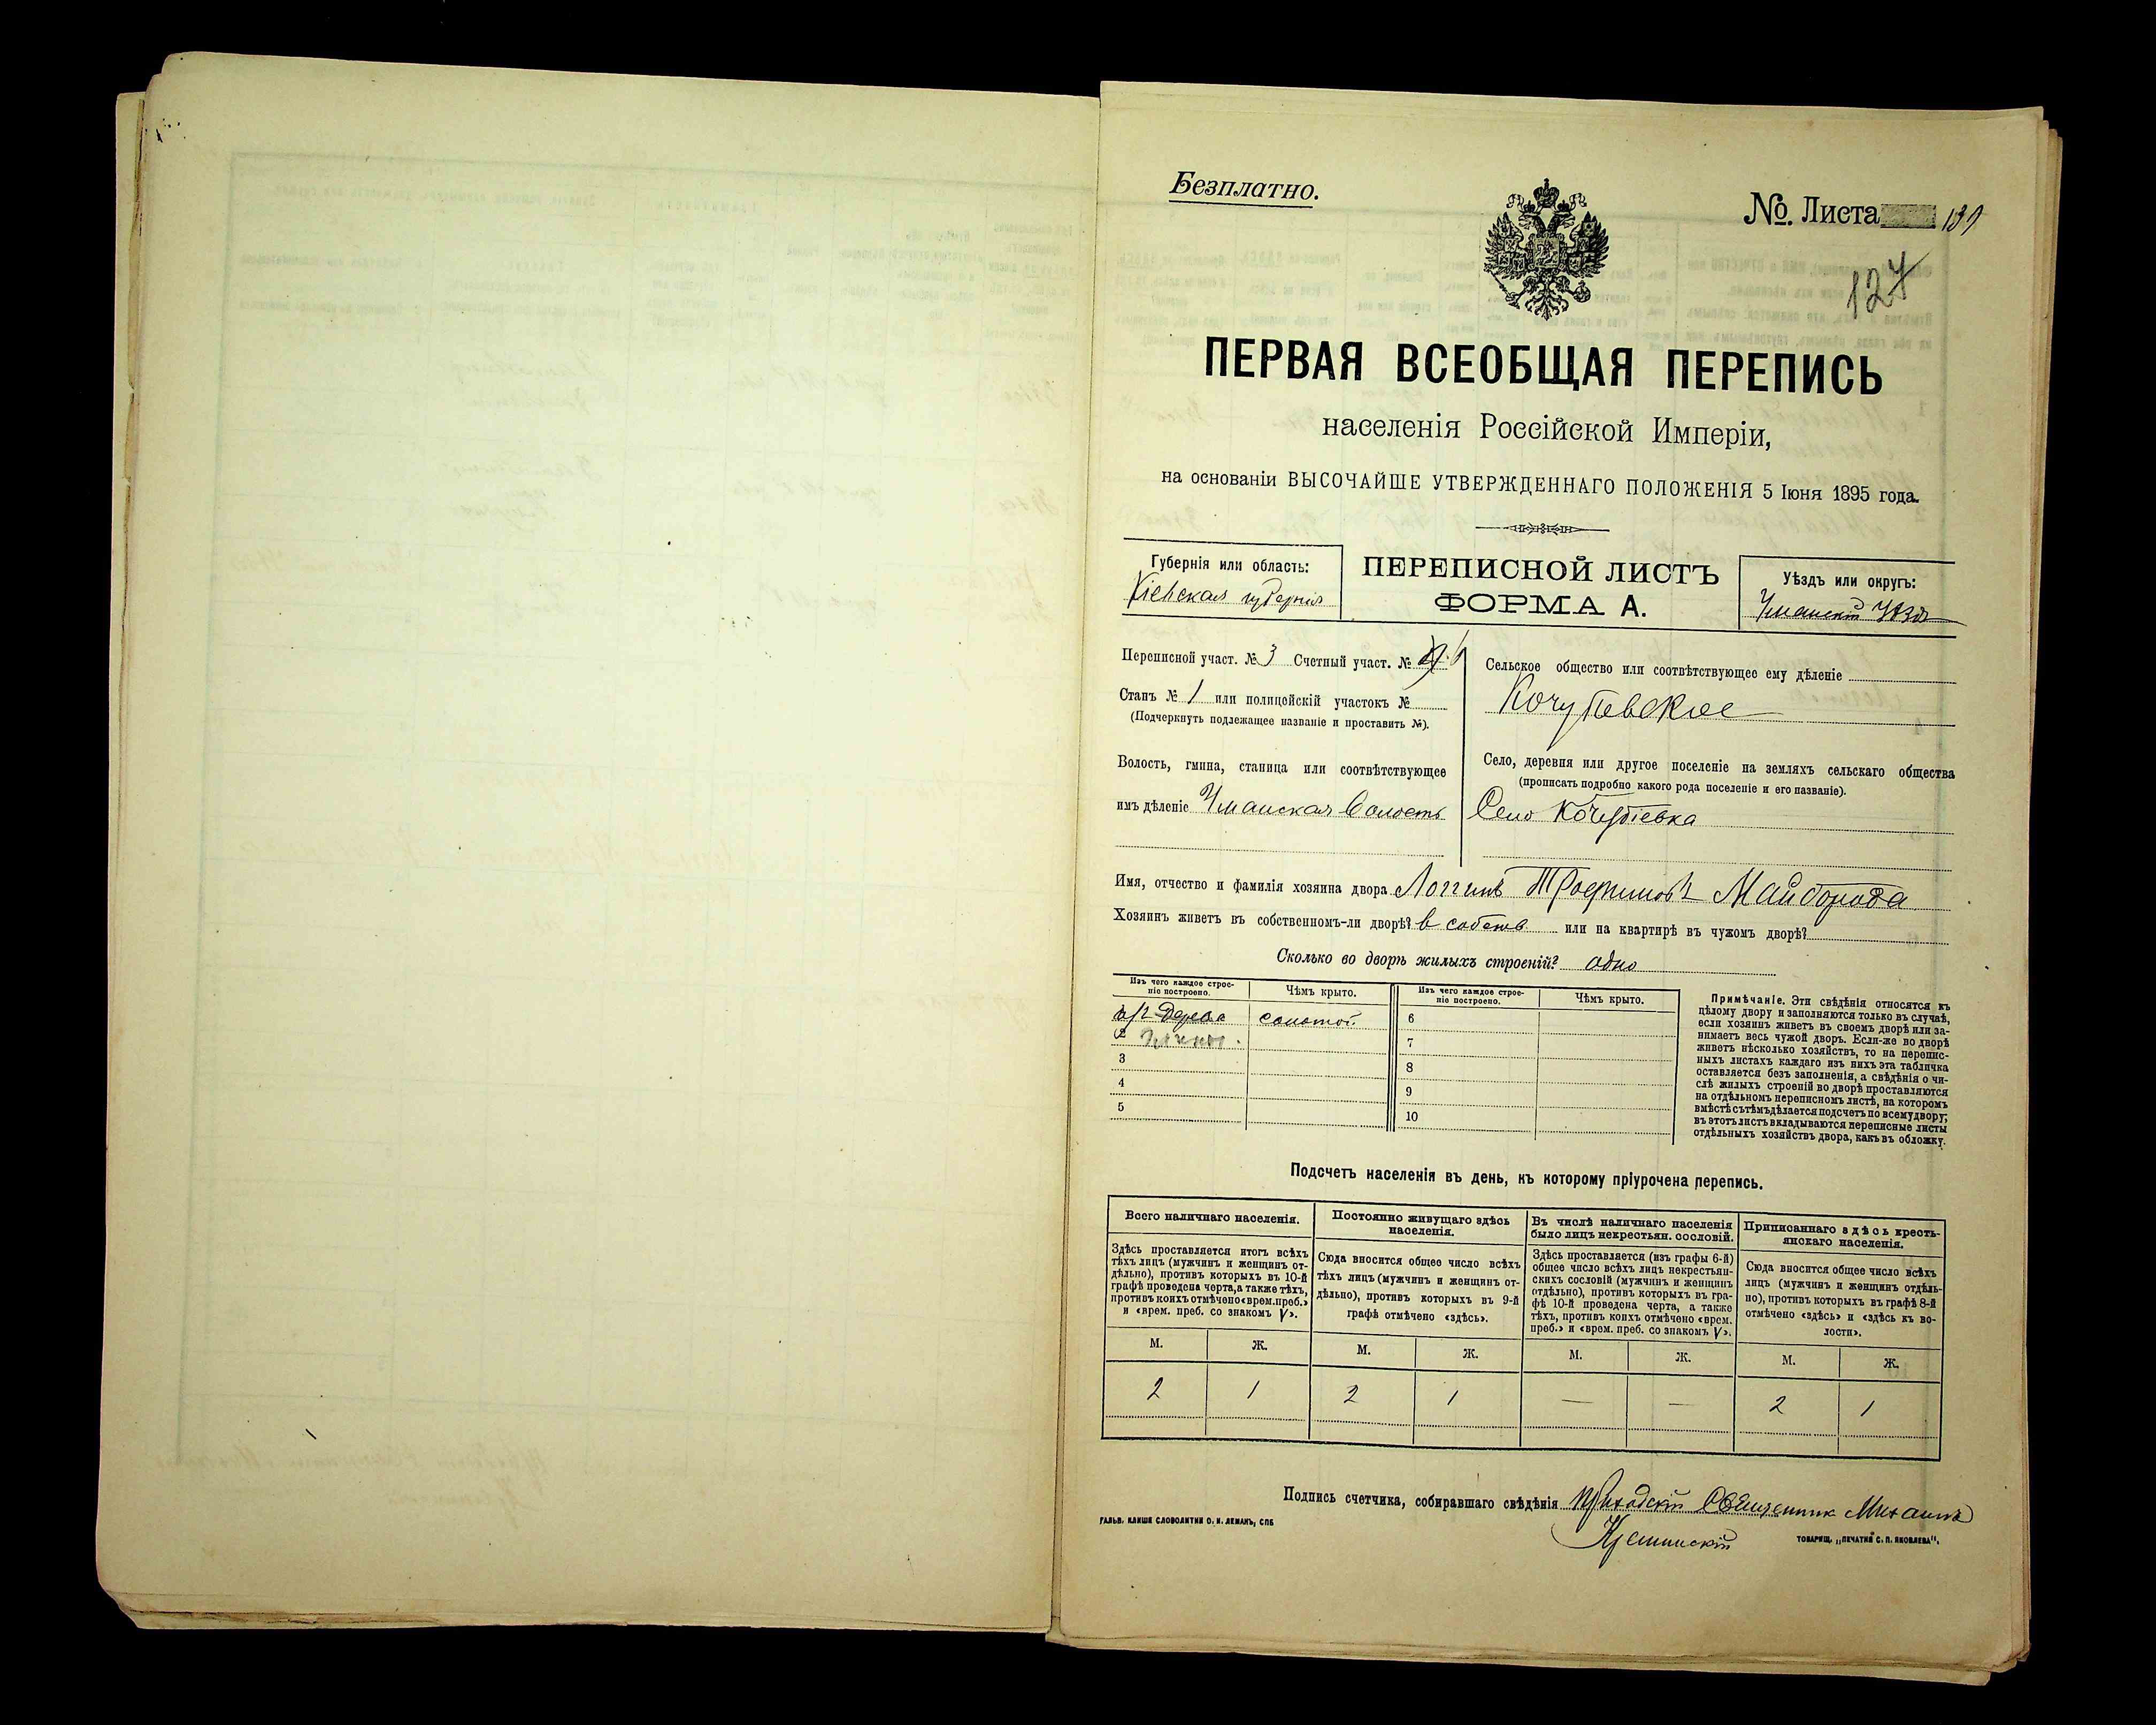 Безплатно.
№. Листа 131
127
ПЕРВАЯ ВСЕОБЩАЯ ПЕРЕПИСЬ
населенія Россійской Имперіи,
на основаніи ВЫСОЧАЙШЕ УТВЕРЖДЕННАГО ПОЛОЖЕНІЯ 5 Іюня 1895 года.
Губернія или область:
Кіевская губернія
ПЕРЕПИСНОЙ ЛИСТЪ
ФОРМА А.
Уѣздъ или округъ:
Уманскій Уѣздъ
Переписной участ. № 3 Счетный участ. №
Станъ № 1 или полицейскій участокъ №
(Подчеркнуть подлежащее названіе и проставить №).
Волость, гмина, станица или соотвѣтствующее
имъ дѣленіе Уманская Волость
Сельское общество или соотвѣтствующее ему дѣленіе
Кочубѣевское
Село, деревня или другое поселеніе на земляхъ сельскаго общества
(прописать подробно какого рода поселеніе и его названіе).
Село Кочубіевка
Имя, отчество и фамилія хозяина двора Логгинъ Трофимовъ Майборода
Хозяинъ живетъ въ собственномъ-ли дворѣ? в собств. или на квартирѣ въ чужомъ дворѣ?
Сколько во дворѣ жилыхъ строеній? одно
Изъ чего каждое строе-
ніе построено.
Чѣмъ крыто.
Изъ чего каждое строе-
ніе построено.
Чѣмъ крыто.
Дерева соломой.
2 глины.
3
4
5
6
7
8
9
10
Примѣчаніе. Эти свѣдѣнія относятся къ
цѣлому двору и заполняются только въ случаѣ,
если хозяинъ живетъ въ своемъ дворѣ или за-
нимаетъ весь чужой дворъ. Если-же во дворѣ
живетъ нѣсколько хозяйствъ, то на перепис-
ныхъ листахъ каждаго изъ нихъ эта табличка
оставляется безъ заполненія, а свѣдѣнія о чи-
слѣ жилыхъ строеній во дворѣ проставляются
на отдѣльномъ переписномъ листѣ, на которомъ
вмѣстѣ съ тѣмъ дѣлается подсчетъ по всему двору;
въ этотъ листъ вкладываются переписные листы
отдѣльныхъ хозяйствъ двора, какъ въ обложку.
Подсчетъ населенія въ день, къ которому пріурочена перепись.
Всего наличнаго населенія.
Здѣсь проставляется итогъ всѣхъ
тѣхъ лицъ (мужчинъ и женщинъ от-
дѣльно), противъ которыхъ въ 10-й
графѣ проведена черта, а также тѣхъ,
противъ коихъ отмѣчено «врем. преб.»
и «врем. преб. со знакомъ V».
Постоянно живущаго здѣсь
населенія.
Сюда вносится общее число всѣхъ
тѣхъ лицъ (мужчинъ и женщинъ от-
дѣльно), противъ которыхъ въ 9-й
графѣ отмѣчено «здѣсь».
Въ числѣ наличнаго населенія
было лицъ некрестьян. сословій.
Здѣсь проставляется (изъ графы 6-й)
общее число всѣхъ лицъ некрестьян-
скихъ сословій (мужчинъ и женщинъ
отдѣльно), противъ которыхъ въ гра-
фѣ 10-й проведена черта, а также
тѣхъ, противъ коихъ отмѣчено «врем.
преб.» и «врем. преб. со знакомъ V».
Приписаннаго здѣсь кресть-
янскаго населенія.
Сюда вносится общее число всѣхъ
лицъ (мужчинъ и женщинъ отдѣль-
но), противъ которыхъ въ графѣ 8-й
отмѣчено «здѣсь» и «здѣсь къ во-
лости».
М. Ж. М. Ж. М. Ж. М. Ж.
2 1 2 1 — — 2 1
Подпись счетчика, собиравшаго свѣдѣнія Приходскій Священник Михаилъ
ГАЛЬВ. КЛИШЕ СЛОВОЛИТНИ О. И. ЛЕМАНЪ, СПБ
ТОВАРИЩ. „ПЕЧАТНЯ С. П. ЯКОВЛЕВА".